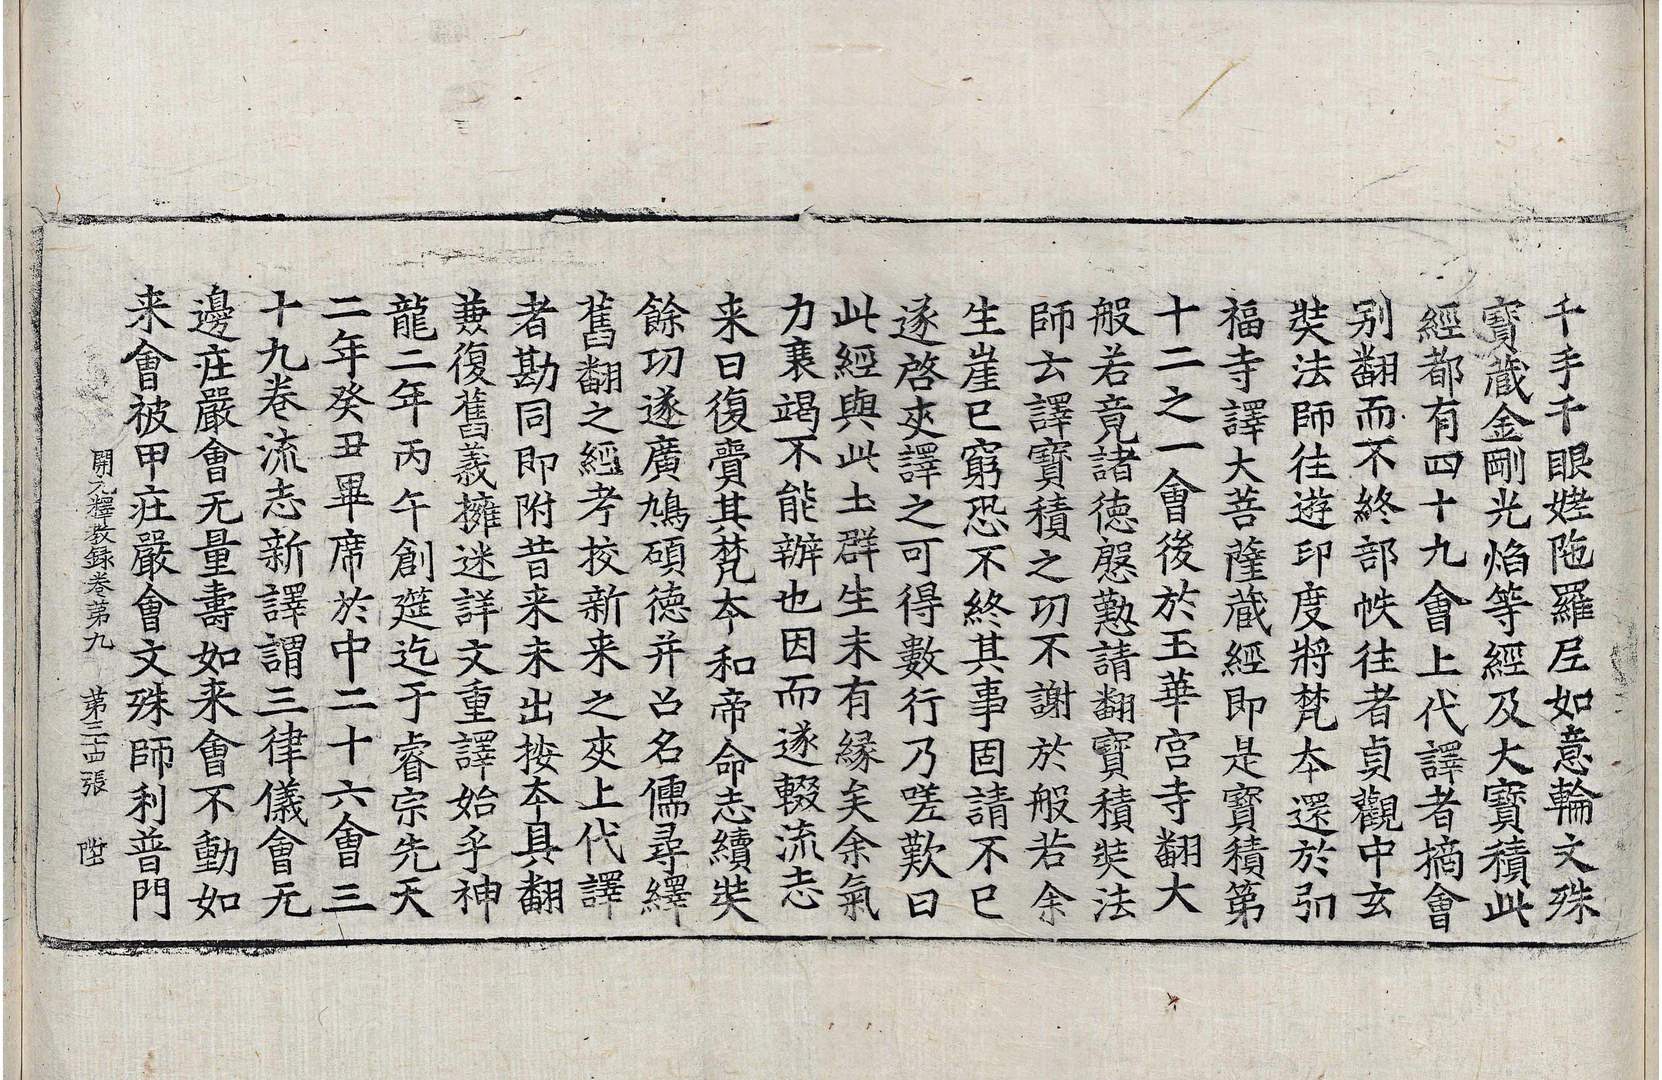 千手千眼姥陁羅尼如意輪文殊
寶蔵金剛光焰等經及大寶積此
經都有四十九會上代譯者摘會
别翻而不終部帙往者貞觀中玄
奘法師往遊印度將梵夲還於弘
福寺譯大菩薩蔵經即是寶積第
十二之一會後於玉華宫寺翻大
般若竟諸徳慇懃請翻寶積奘法
師云譯寶積之功不謝於般若余
生崖已窮恐不終其事固請不已
遂啓夾譯之可得數行乃嗟歎曰
此經與此土群生未有緣矣余氣
力衰竭不能辦也因而遂輟流志
来日復賷其梵夲和帝命志續奘
餘功遂廣鳩碩徳并召名儒尋繹
舊翻之經考挍新来之夾上代譯
者勘同即附昔来未出按夲具翻
兼復舊義擁迷詳文重譯始乎神
龍二年丙午創筵迄于睿宗先天
二年癸丑畢席於中二十六會三
十九卷流志新譯謂三律儀會无
邊庄嚴會无量壽如来會不動如
来會被甲庄嚴會文殊師利普門
開元釋教録卷第九 第三十四張 陞